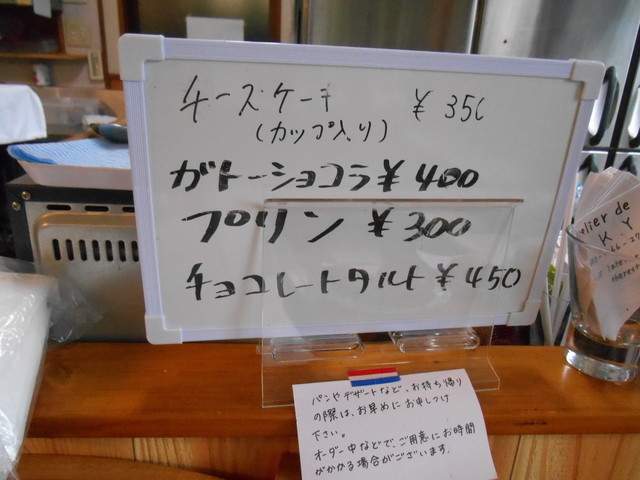 チーズケーキ ¥350
(カップ入り)
ガトーショコラ ¥400
プリン ¥300
チョコレートタルト ¥450
パンやデザートなど、お持ち帰り
の際は、お早めにお申しつけ
下さい。
オーダー中などで、ご用意にお時間
がかかる場合がございます。
atelier de
K.Y